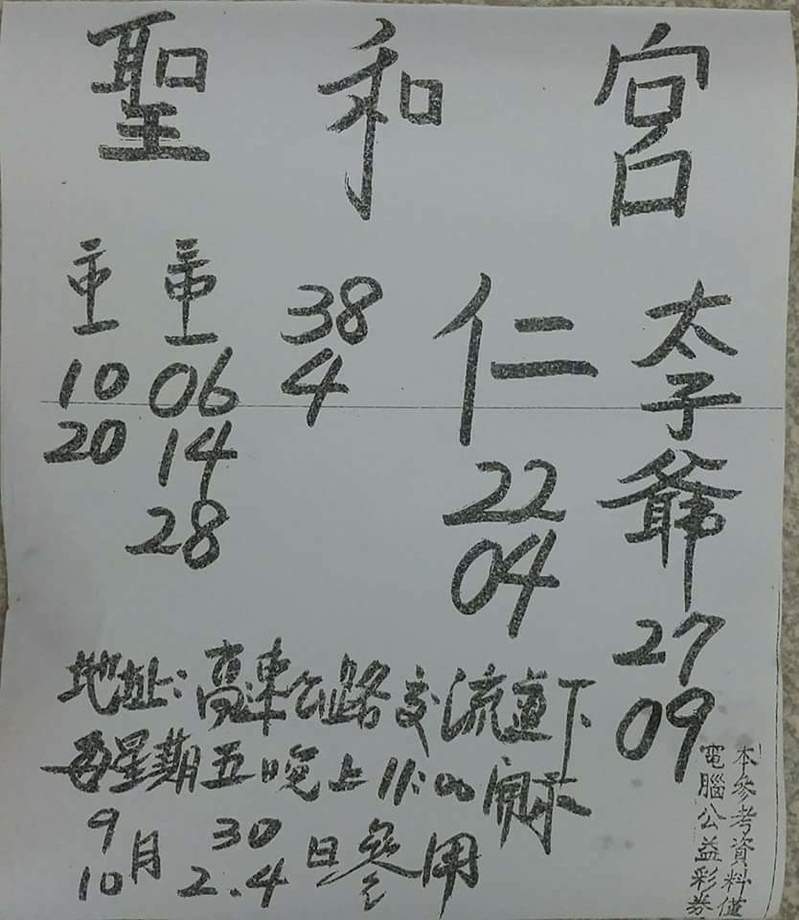 聖和宮
太子爺
27
09
仁
22
04
38
4
06
14
28
10
20
地址:高速公路交流道下
每星期五晚上11:00開示
9月30
10 2.4日參用
本參考資料僅
電腦公益彩券